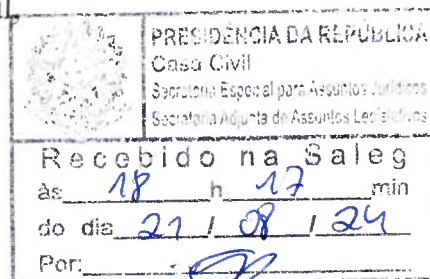 PRESIDÊNCIA DA REPÚBLICA
Casa Civil
Secretaria Especial para Assuntos Jurídicos
Secretaria Adjunta de Assuntos Legislativos
Recebido na Saleg
às 18 h 17 min
do dia 21 / 08 / 24
Por: